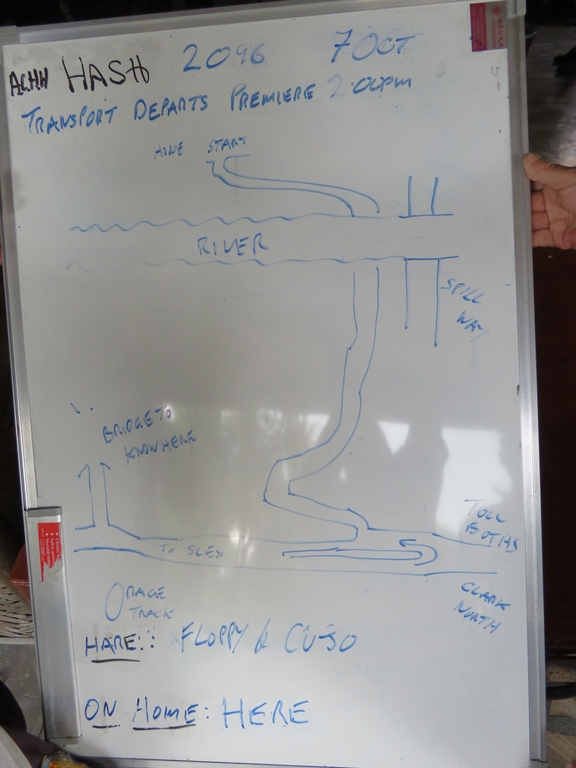 ACHH HASH 2096 7 OCT
TRANSPORT DEPARTS PREMIERE 2:00PM
START
RIVER
SPILL
WAY
BRIDGE TO
KNOWHERE
TOLL
BOTHS
TO SLEX
CLARK
NORTH
RACE
TRACK
HARE: FLOPPY & CUJO
ON HOME: HERE